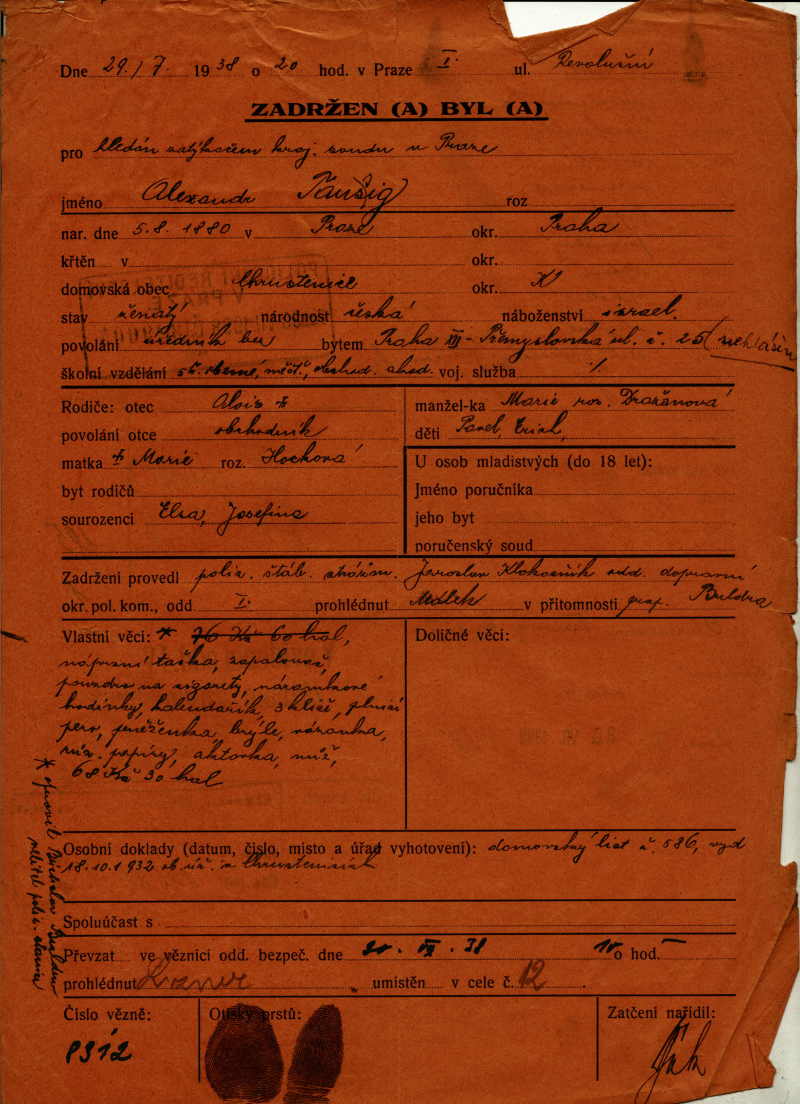 Dne 29./7. 1938 o 20 hod. v Praze I. ul. Revoluční
ZADRŽEN (A) BYL (A)
pro hledán zatykačem kraj. soudu v Praze
jméno Alexandr Taussig roz
nar. dne 5.8.1880 v Praze okr. Praha
křtěn v okr.
domovská obec Chrustenice okr.
stav ženatý národnost česká náboženství israel.
povolání úředník bytem Praha III - Přemyslovská ul. č. 25 (nehlášen
školní vzdělání 5 tř. obecné, měšť., obchod. akad. voj. služba
Rodiče: otec Alois †
povolání otce obchodník
matka † Marie roz. Hochová
byt rodičů
sourozenci Elsa, Josefina
manžel-ka Marie roz. Dražanová
děti Pavel, Erich,
U osob mladistvých (do 18 let):
Jméno poručníka
jeho byt
poručenský soud
Zadržení provedl poliz. štáb. strážm. Jaroslav Klokočník odd. dopravní
okr. pol. kom., odd I. prohlédnut Málek v přítomnosti Buldra
Vlastní věci: * 76 Kč 60 hal,
náprsní taška, zapalovač,
pouzdro na cigarety, náramkové
hodinky, kalendářík, 3 klíče, plnicí
pero, peněženka, brýle, vázanka,
růz. papíry, aktovka, nůž,
68 Kč 30 hal
Doličné věci:
* opravil
Osobní doklady (datum, číslo, místo a úřad vyhotovení): domovský list č. 586, vyd
18.10.1932 ob. úř. v Chrustenicích
Spoluúčast s
Převzat ve věznici odd. bezpeč. dne 30. VII. 38 10 hod.
prohlédnut umístěn v cele č. 12.
Číslo vězně:
8312
Otisky prstů:
Zatčení nařídil: